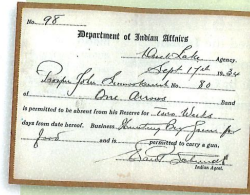 No. 98
Department of Indian Affairs
Duck Lake Agency.
Sept 17th 1932
John No. 80
of One Arrow's Band
is permitted to be absent from his Reserve for two Weeks
days from date hereof. Business Hunting Big Game for
food and is permitted to carry a gun.
Indian Agent.